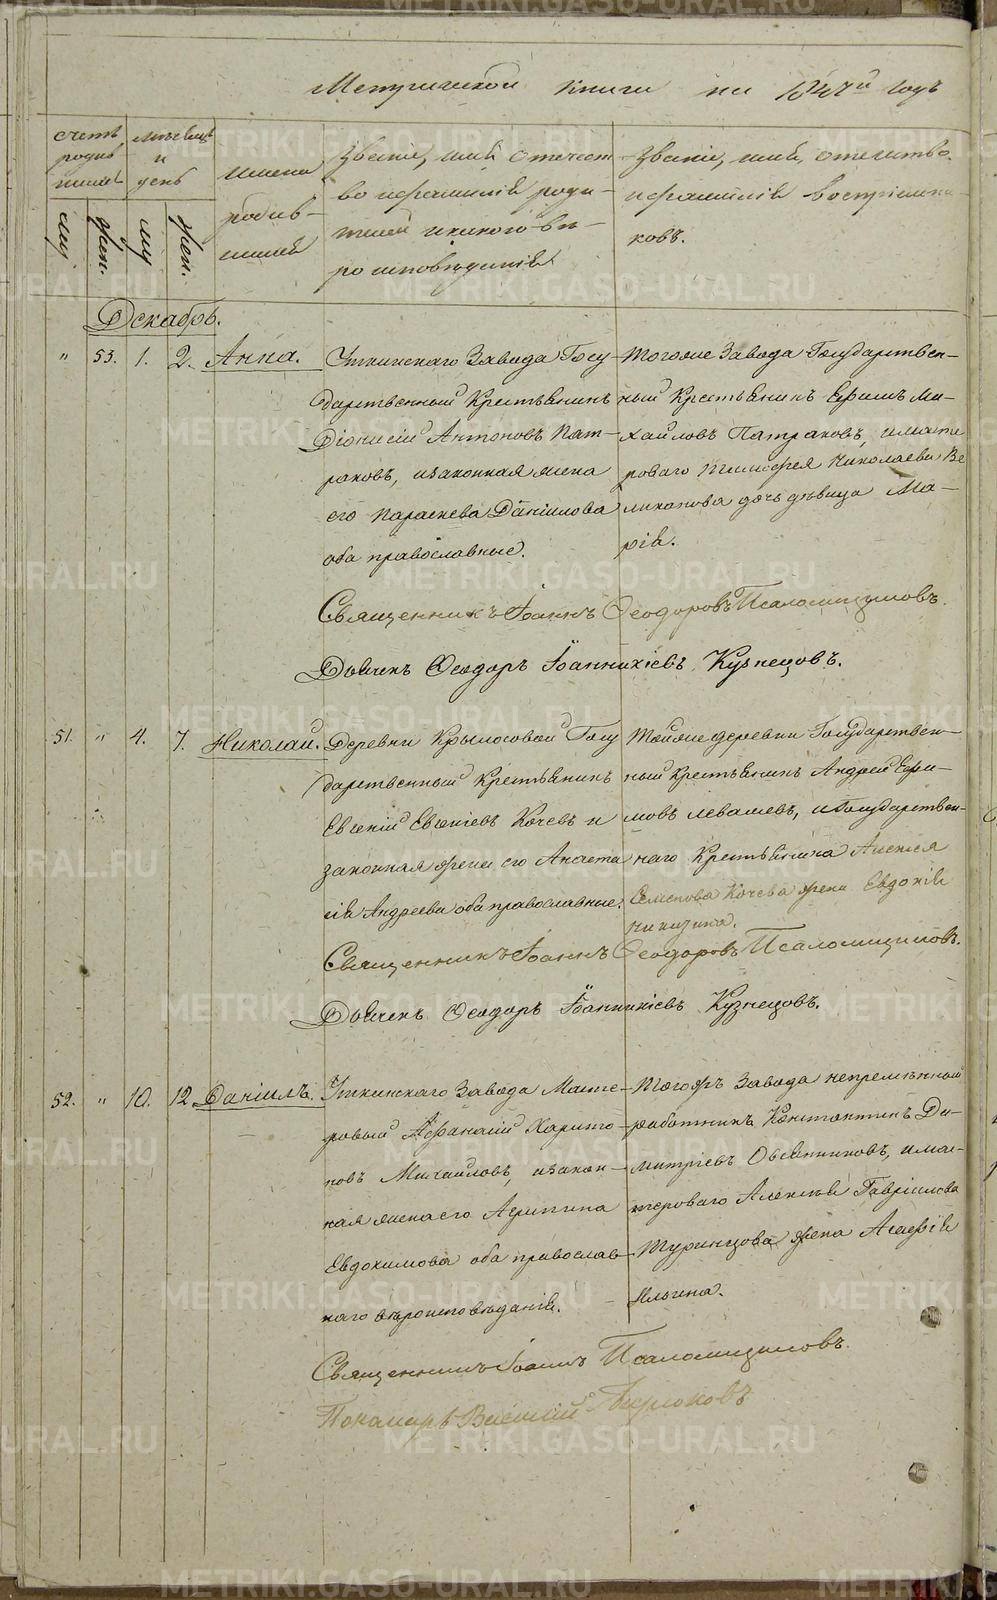 Метрической книги на 1847й годъ
счетъ родившихся
мѣсяцъ и день
имена родив-
шихся
Званіе, имя отечест-
во и фамилія роди-
телей и какого вѣ-
роисповѣданія
Званіе, имя, отечество
и фамилія воспріемни-
ковъ.
муж.
жен.
Декабрь.
" 53. 1. 2. Анна.
Уткинскаго Завода Госу-
дарственный Крестьянинъ
Діонисій Антоновъ Пат-
раковъ, и законная жена
его Параскева Даніилова
оба православные.
Тогоже Завода Государствен-
ный Крестьянинъ Ефимъ Ми-
хайловъ Патраковъ, и масте
роваго Тимофея Николаева Ве
ликанова дочь дѣвица Ма-
рія.
Священникъ Іоаннъ Ѳеодоровъ Псаломщиковъ.
Дьячекъ Ѳеодоръ Іоанникіевъ Кузнецовъ.
51. " 4. 7. Николай.
Деревни Крылосовой Госу
дарственный Крестьянинъ
Евгеній Евгеніевъ Кочевъ и
законная жена его Анаста
сія Андреева оба православные.
Тойже деревни Государствен-
ный Крестьянинъ Андрей Ефи-
мовъ Левашевъ, и Государствен-
наго Крестьянина Алексея
Семенова Кочева жена Евдокія
Никитина.
Священникъ Іоаннъ Ѳеодоровъ Псаломщиковъ.
Дьячекъ Ѳеодоръ Іоанникіевъ Кузнецовъ.
52. " 10. 12 Даніилъ.
Уткинскаго Завода Масте-
ровый Афанасій Харито-
новъ Михайловъ, и закон-
ная жена его Агрипина
Евдокимова оба православ-
наго вѣроисповѣданія.
Тогожъ Завода непремѣнный
работникъ Константинъ Ди-
митріевъ Овсянниковъ, и мас-
тероваго Алексѣя Гавріилова
Туринцова жена Агафія
Ильина.
Священникъ Іоаннъ Псаломщиковъ.
Пономарь Василій Бирюковъ
METRIKI.GASO-URAL.RU